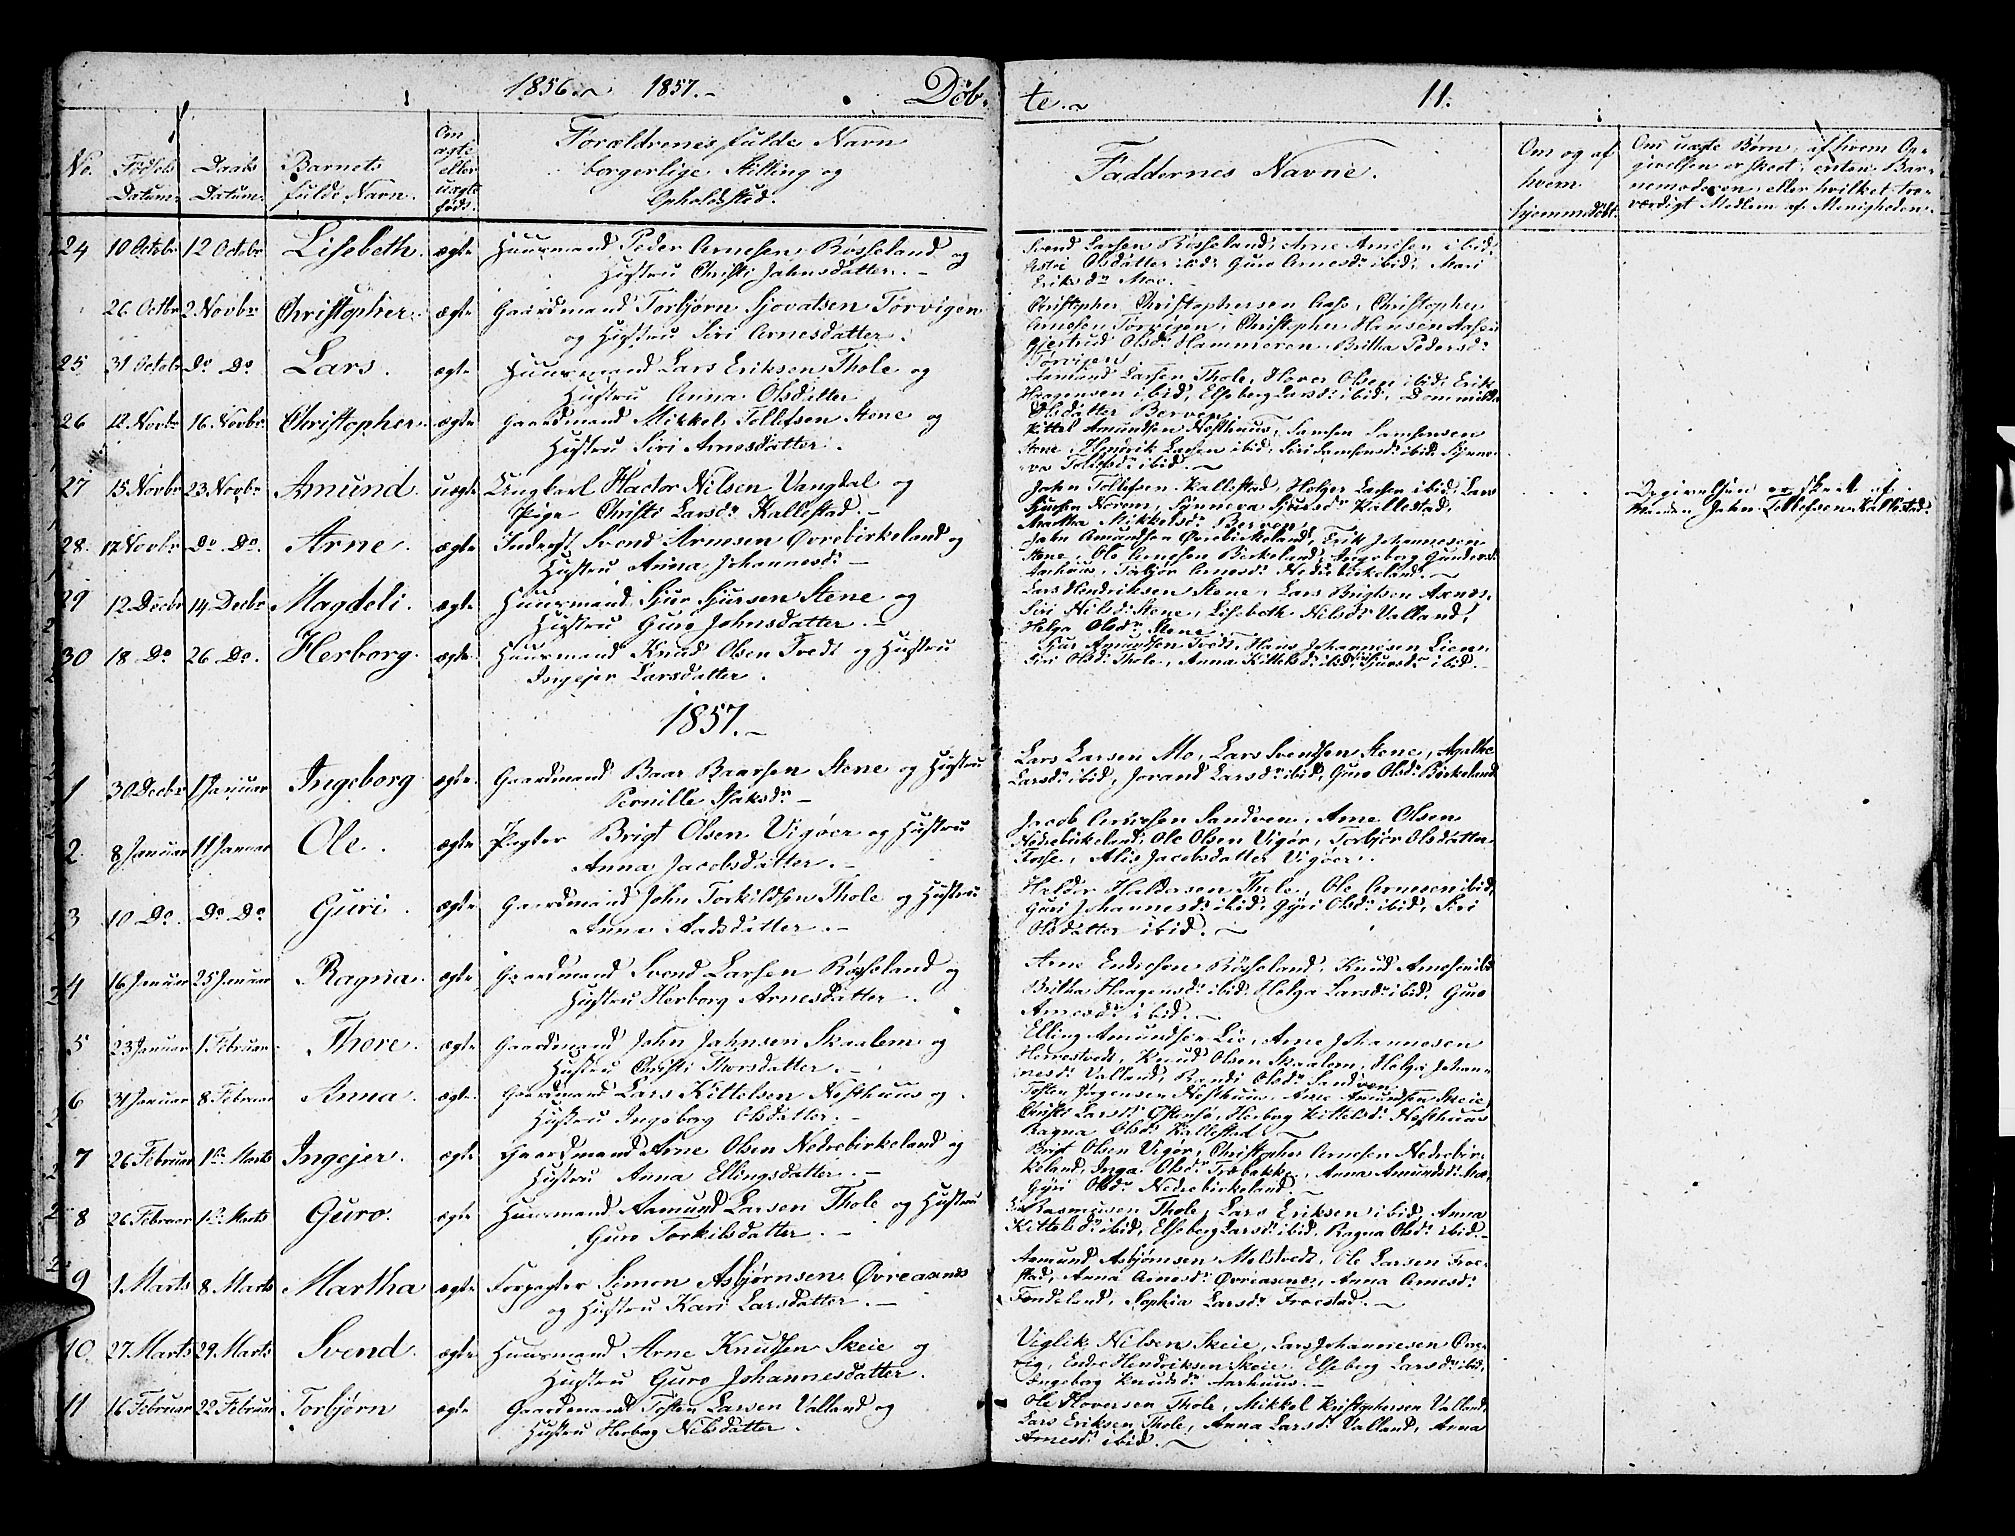 1856 1857.- Døb-
te. 11.
No. Fødsels Datum. Daabs Datum. Barnets fulde Navn. Om ægte eller uægte født. Forældrenes fulde Navn borgerlige Stilling og Opholdssted.
Faddernes Navne. Om og af hvem hjemmedøbt. Om uægte Børn, af hvem Opgivelsen er skeet, enten Barnemoderen, eller hvilket troværdigt Medlem af Menigheden.
24 10 Octobr 12 Octobr Lisebeth. ægte Huusmand Peder Arnesen Røsseland og
Hustru Christi Jahnsdatter.-
Svend Larsen Røsseland, Arne Arnesen ibid,
Olsdatter ibid, Guro Arnesdr ibid, Mari
Eriksdr Moe.
26 Octbr 2 Novbr Christopher. ægte Gaardmand Torbjørn Sjovatsen Torvigen
og Hustru Siri Arnesdatter.
Christopher Christophersen Aase, Christopher
Arnesen Torvigen, Christopher Hansen Aasen
Gjertrud Olsdr Hammeren, Britha Pedersdr
Torvigen
25 31 Octobr Do Do Lars. ægte Huusmand Lars Eriksen Thole og
Hustru Anna Olsdatter
Aamund Larsen Thole, Hover Olsen ibid, Erik
Haagensen ibid, Elseberg Larsdr ibid,
Olsdatter Berven
26 12 Novbr 16 Novbr Christopher. ægte Gaardmand Mikkel Tollefsen Stene og
Hustru Siri Arnesdatter.
Kittel Amundsen Nesthuus, Samson Samsonsen
Stene, Hendrik Larsen ibid, Siri Samsonsdr ibid, Synne-
va Tollefsdr ibid.
27 15 Novbr 23 Novbr Amund. uægte Ungkarl Hactor Nilsen Vangdal og
Pige Christi Larsdr Kallestad.-
John Tollefsen Kallestad, Holger Larsen ibid, Lars
Sjursen Norem, Synneva Sjursdr Kallestad,
Martha Mikkelsdr Berven
Opgivelsen er skeet af
John Tollefsen Kallestad.
28. 17 Novbr Do Do. Arne. ægte Inderst Svend Arnesen Øvrebirkeland og
Hustru Anna Johannesdr.-
John Amundsen Øvrebirkeland, Erik Johannesen
Stene, Ole Arnesen Birkeland, Ingeborg Gundersdr
Aarhuus, Torbjør Arnesdr Nedrebirkeland.
29 12 Decbr 14 Decbr Magdeli. ægte Huusmand Sjur Sjursen Stene og
Hustru Guro Johnsdatter.-
Lars Hendriksen Stene, Lars Brigtsen Axnes,
Siri Nilsdr Stene, Lisebeth Nilsdr Valland,
Helga Olsdr Stene
30 18 Do 26 Do. Herborg. ægte Huusmand Knud Olsen Tvedt og Hustru
Ingejer Larsdatter.
Sjur Amundsen Tvedt, Hans Johannesen Lien,
Siri Olsdr Thole, Anna Kittelsdr ibid, Sjursdr ibid.-
1857.-
1 30 Decbr 1 Januar Ingeborg ægte Gaardmand Baar Baarsen Stene og Hustru
Pernille Isaksdr-
Lars Larsen Mo, Lars Svendsen Stene, Agathe
Larsdr ibid, Jorand Larsdr ibid, Guro Olsdr Birkeland
2. 8 Januar 11 Januar Ole. ægte Pagter Brigt Olsen Vigøer og Hustru
Anna Jacobsdatter.-
Jacob Sandven, Arne Olsen
Nedrebirkeland, Ole Olsen Vigør, Torbjør Olsdatter
Fosse, Alis Jacobsdatter Vigøer.
3 10 Do. Do Do. Guri. ægte Gaardmand John Torkildsen Thole og Hustru
Anna Aadsdatter.-
Haldor Haldorsen Thole, Ole Arnesen ibid,
Guri Johannesdr ibid, Gyri Olsdr ibid, Siri
Olsdatter ibid.
4 16 Januar 25 Januar Ragna. ægte Gaardmand Svend Larsen Røsseland og
Hustru Herborg Arnesdatter.
Arne Endresen Røsseland, Knud Arnesen ibid
Britha Haagensdr ibid, Helga Larsdr ibid, Guro
Arnesdr ibid.
5 23 Januar 1 Februar Thore. ægte Gaardmand John Jahnsen Skaalem og
Hustru Christi Thorsdatter.-
Elling Amundsen Lie, Arne Johannesen
Knud Olsen Skaalem, Helga Johan-
nesdr Valland, Randi Olsdr Sandven.
6 31 Januar 8 Februar Anna. ægte Gaardmand Lars Kittelsen Nesthuus og
Hustru Ingeborg Olsdatter.-
Tosten Jørgensen Nesthuus, Arne Amundsen Skeie,
Christi Larsdr Østensø, Herborg Kittelsdr Nesthuus
Ragna Olsdr Kallestad
7 26 Februar 1ste Marts Ingejer. ægte Gaardmand Arne Olsen Nedrebirkeland og
Hustru Anna Ellingsdatter.-
Brigt Olsen Vigør, Christopher Arnesen Nedrebir-
keland, Inga Olsdr Træbakke, Anna Amundsdr
Gyri Olsdr Nedrebirkeland.
8 26 Februar 1ste Marts Guro. ægte Huusmand Aamund Larsen Thole og Hustru
Guro Torkilsdatter.-
Rasmusen Thole, Lars Eriksen ibid, Anna
Kittelsdr ibid, Elseberg Larsdr ibid, Ragna Olsdr ibid.-
9 1 Marts 8 Marts Martha ægte Forpagter Simon Asbjørnsen Øvreaxnes
og Hustru Kari Larsdatter.-
Aamund Asbjørnsen Molstvedt, Ole Larsen Froe-
stad, Anna Arnesdr Øvreaxnes, Anna Arnesdr
Tondeland, Sophia Larsdr Froestad.-
10. 27 Marts 29 Marts Svend. ægte Huusmand Arne Knudsen Skeie og
Hustru Guro Johannesdatter.
Viglik Nilsen Skeie, Lars Johannesen
Endre Hendriksen Skeie, Elseberg Larsdr ibid,
Ingeborg Knudsdr Aarhuus.-
11 16 Februar 22 Februar Torbjørn ægte Gaardmand Tosten Larsen Valland og
Hustru Herborg Nilsdatter.
Ole Hoversen Thole, Mikkel Kristophersen Valland,
Lars Eriksen Thole, Anna Larsdr Valland, Anna
Arnesdr ibid.